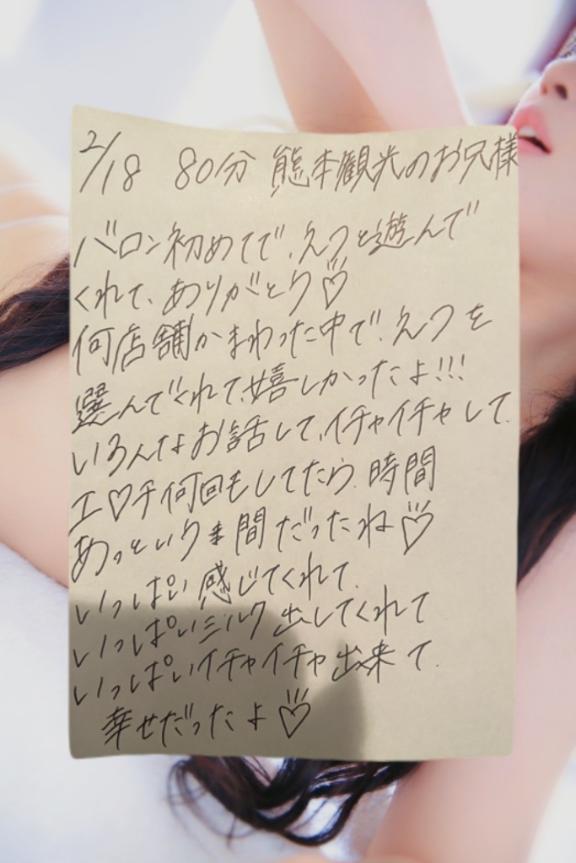 2/18 80分 熊本観光のお兄様
バロン初めてで、えつと遊んで
くれて、ありがとう♡
何店舗かまわった中で、えつを
選んでくれて、嬉しかったよ!!!
いろんなお話して、イチャイチャして、
エ♡チ何回もしてたら、時間
あっという間だったね♡
いっぱい感じてくれて、
いっぱいミルク出してくれて
いっぱいイチャイチャ出来て、
幸せだったよ♡